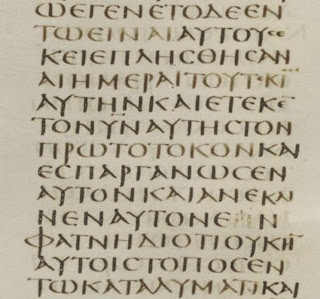 ΩΕΓΕΝΕΤΟΔΕΕΝ
ΤΩΕΙΝΑΙΑΥΤΟΥϹΕ
ΚΕΙΕΠΛΗϹΘΗϹΑΝ
ΑΙΗΜΕΡΑΙΤΟΥΤΕΚΙ̅
ΑΥΤΗΝΚΑΙΕΤΕΚΕ
ΤΟΝΥΝΑΥΤΗϹΤΟΝ
ΠΡΩΤΟΤΟΚΟΝΚΑΙ
ΕϹΠΑΡΓΑΝΩϹΕΝ
ΑΥΤΟΝΚΑΙΑΝΕΚΛΙ
ΝΕΝΑΥΤΟΝΕΝ
ΦΑΤΝΗΔΙΟΤΙΟΥΚΗ̅
ΑΥΤΟΙϹΤΟΠΟϹΕΝ
ΤΩΚΑΤΑΛΥΜΑΤΙΚΑΙ